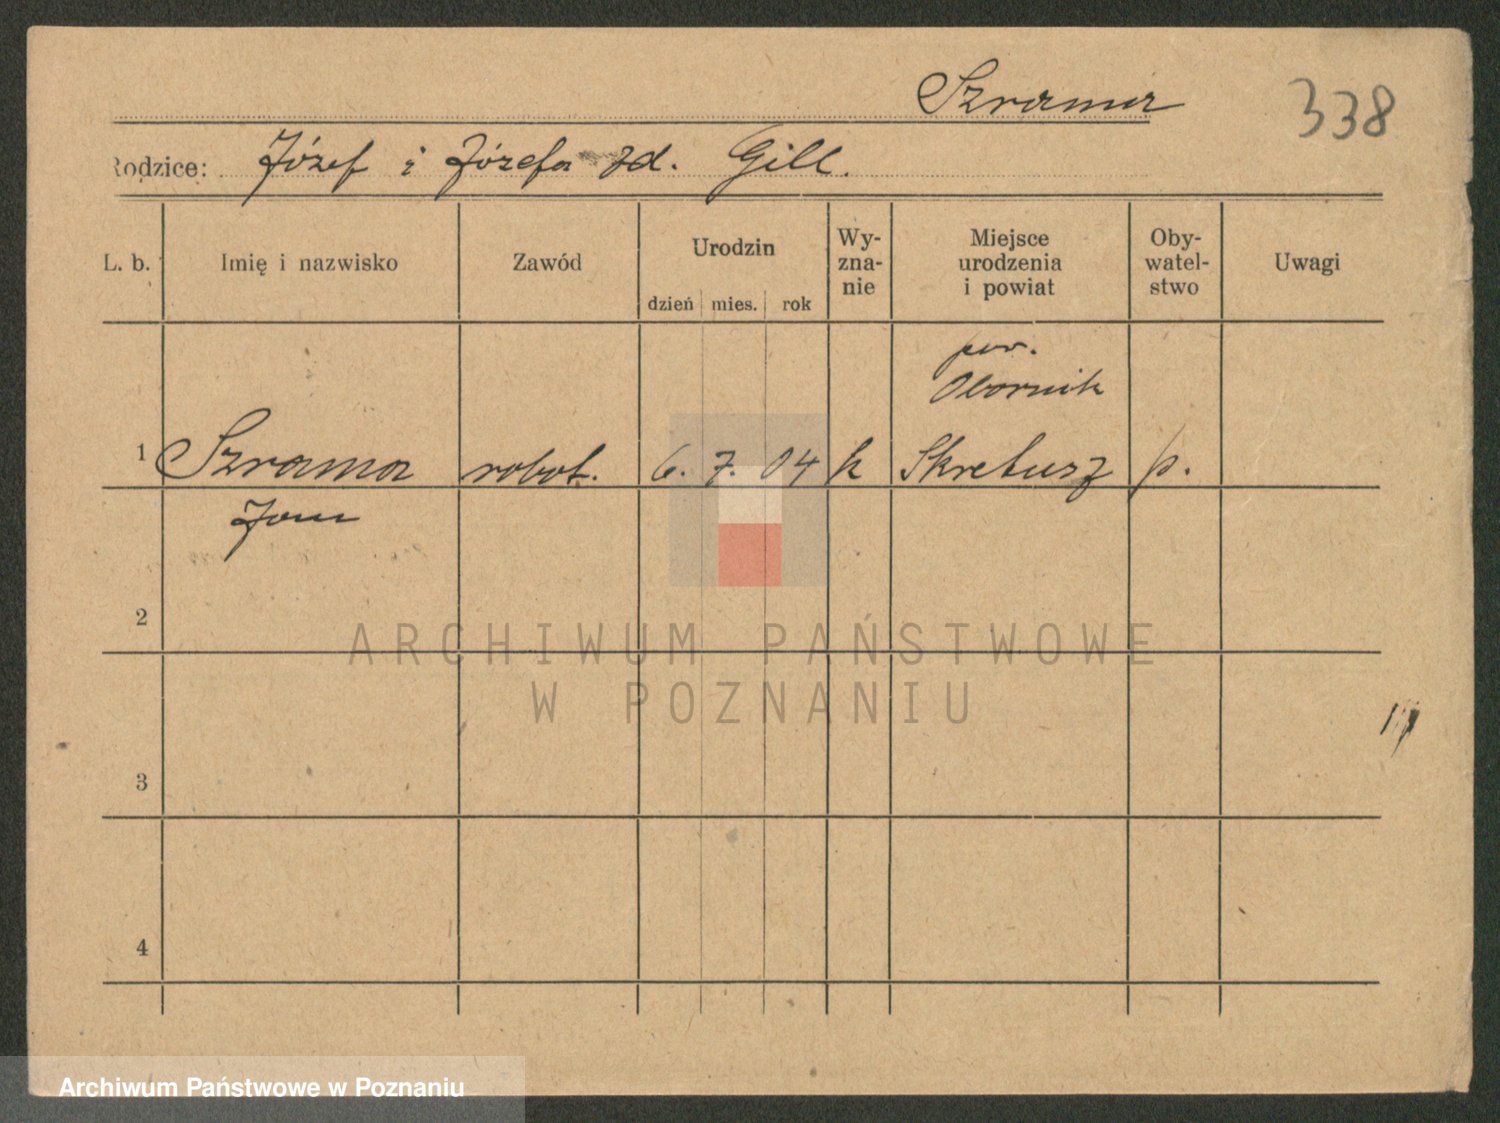 Szrama 338
Rodzice: Józef i Józefa zd. Gill.
L. b. Imię i nazwisko Zawód Urodzin dzień mies. rok Wy-zna-nie Miejsce urodzenia i powiat Oby-watel-stwo Uwagi
pow.
Obornik
1 Szrama robot. 6. 7. 04 k Skretusz p.
Jan
2
ARCHIWUM PAŃSTWOWE
W POZNANIU
3
4
Archiwum Państwowe w Poznaniu